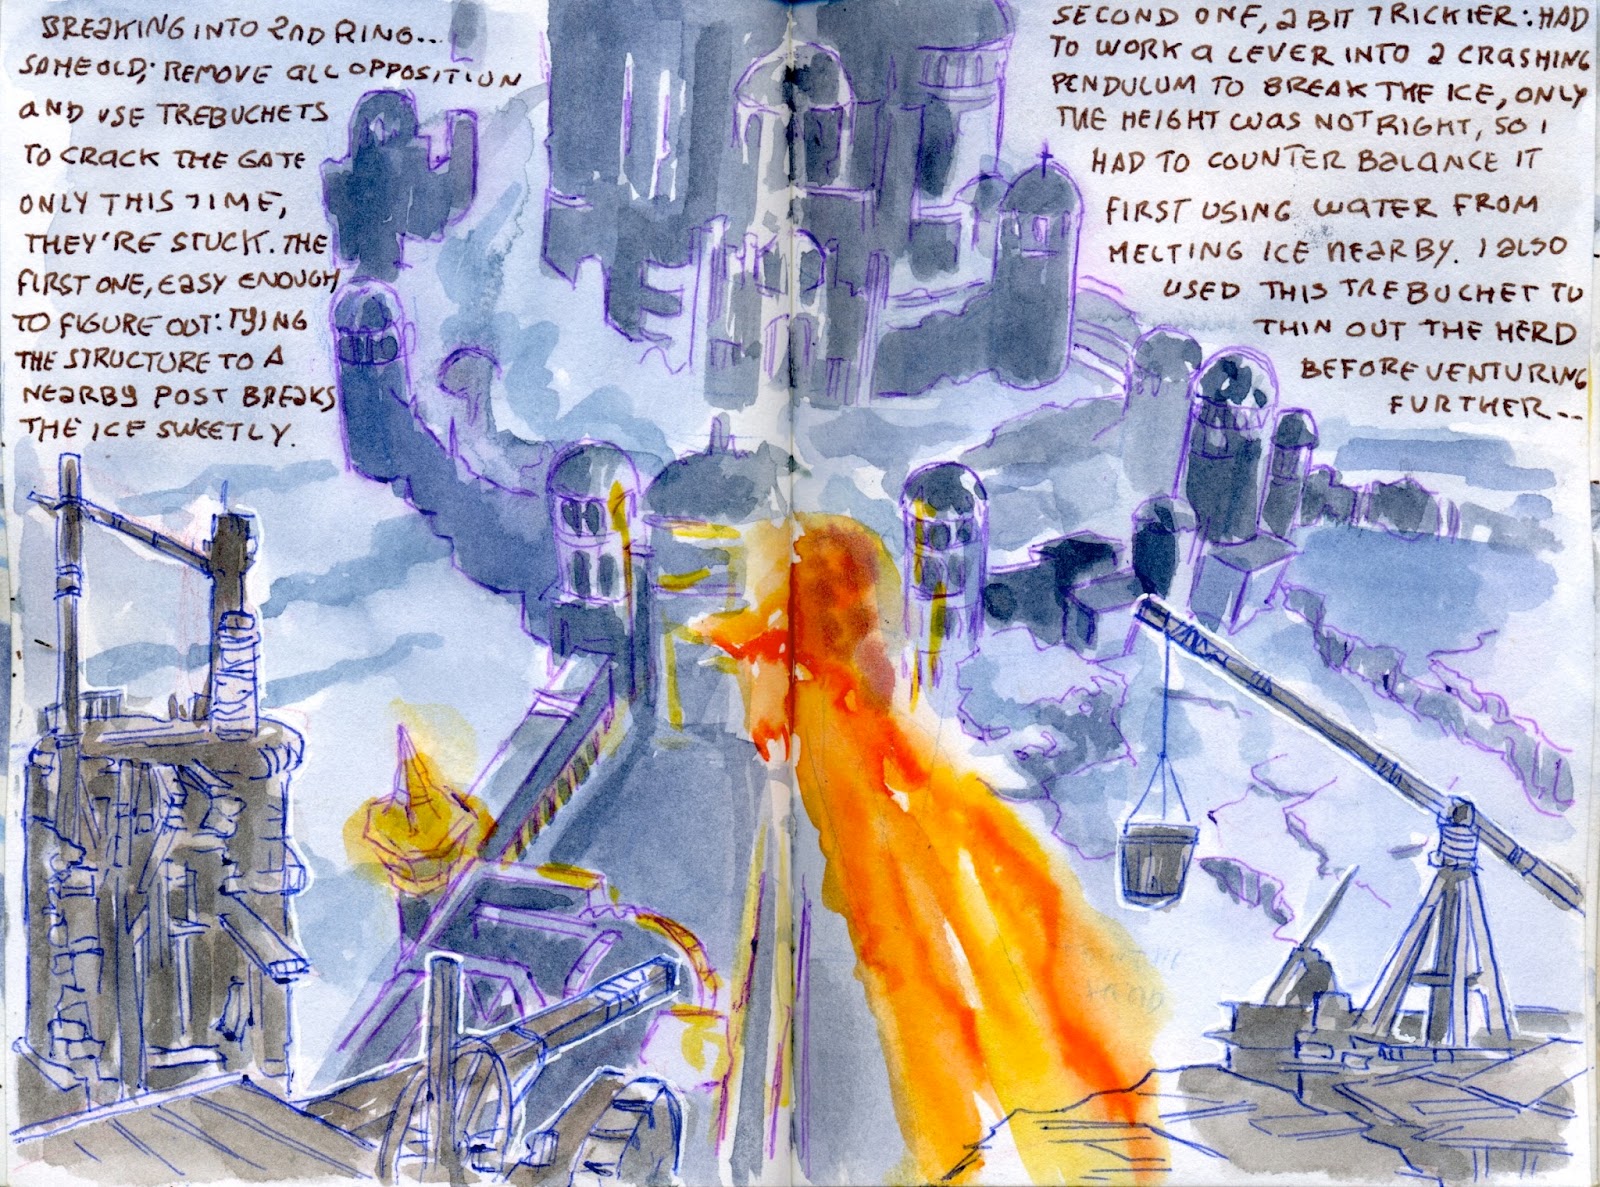 BREAKING INTO 2ND RING...
SAME OLD; REMOVE ALL OPPOSITION
AND USE TREBUCHETS
TO CRACK THE GATE
ONLY THIS TIME,
THEY'RE STUCK. THE
FIRST ONE, EASY ENOUGH
TO FIGURE OUT: TYING
THE STRUCTURE TO A
NEARBY POST BREAKS
THE ICE SWEETLY.
SECOND ONE, A BIT TRICKIER: HAD
TO WORK A LEVER INTO A CRASHING
PENDULUM TO BREAK THE ICE, ONLY
THE HEIGHT WAS NOT RIGHT, SO I
HAD TO COUNTER BALANCE IT
FIRST USING WATER FROM
MELTING ICE NEARBY. I ALSO
USED THIS TREBUCHET TO
THIN OUT THE HERD
BEFORE VENTURING
FURTHER...